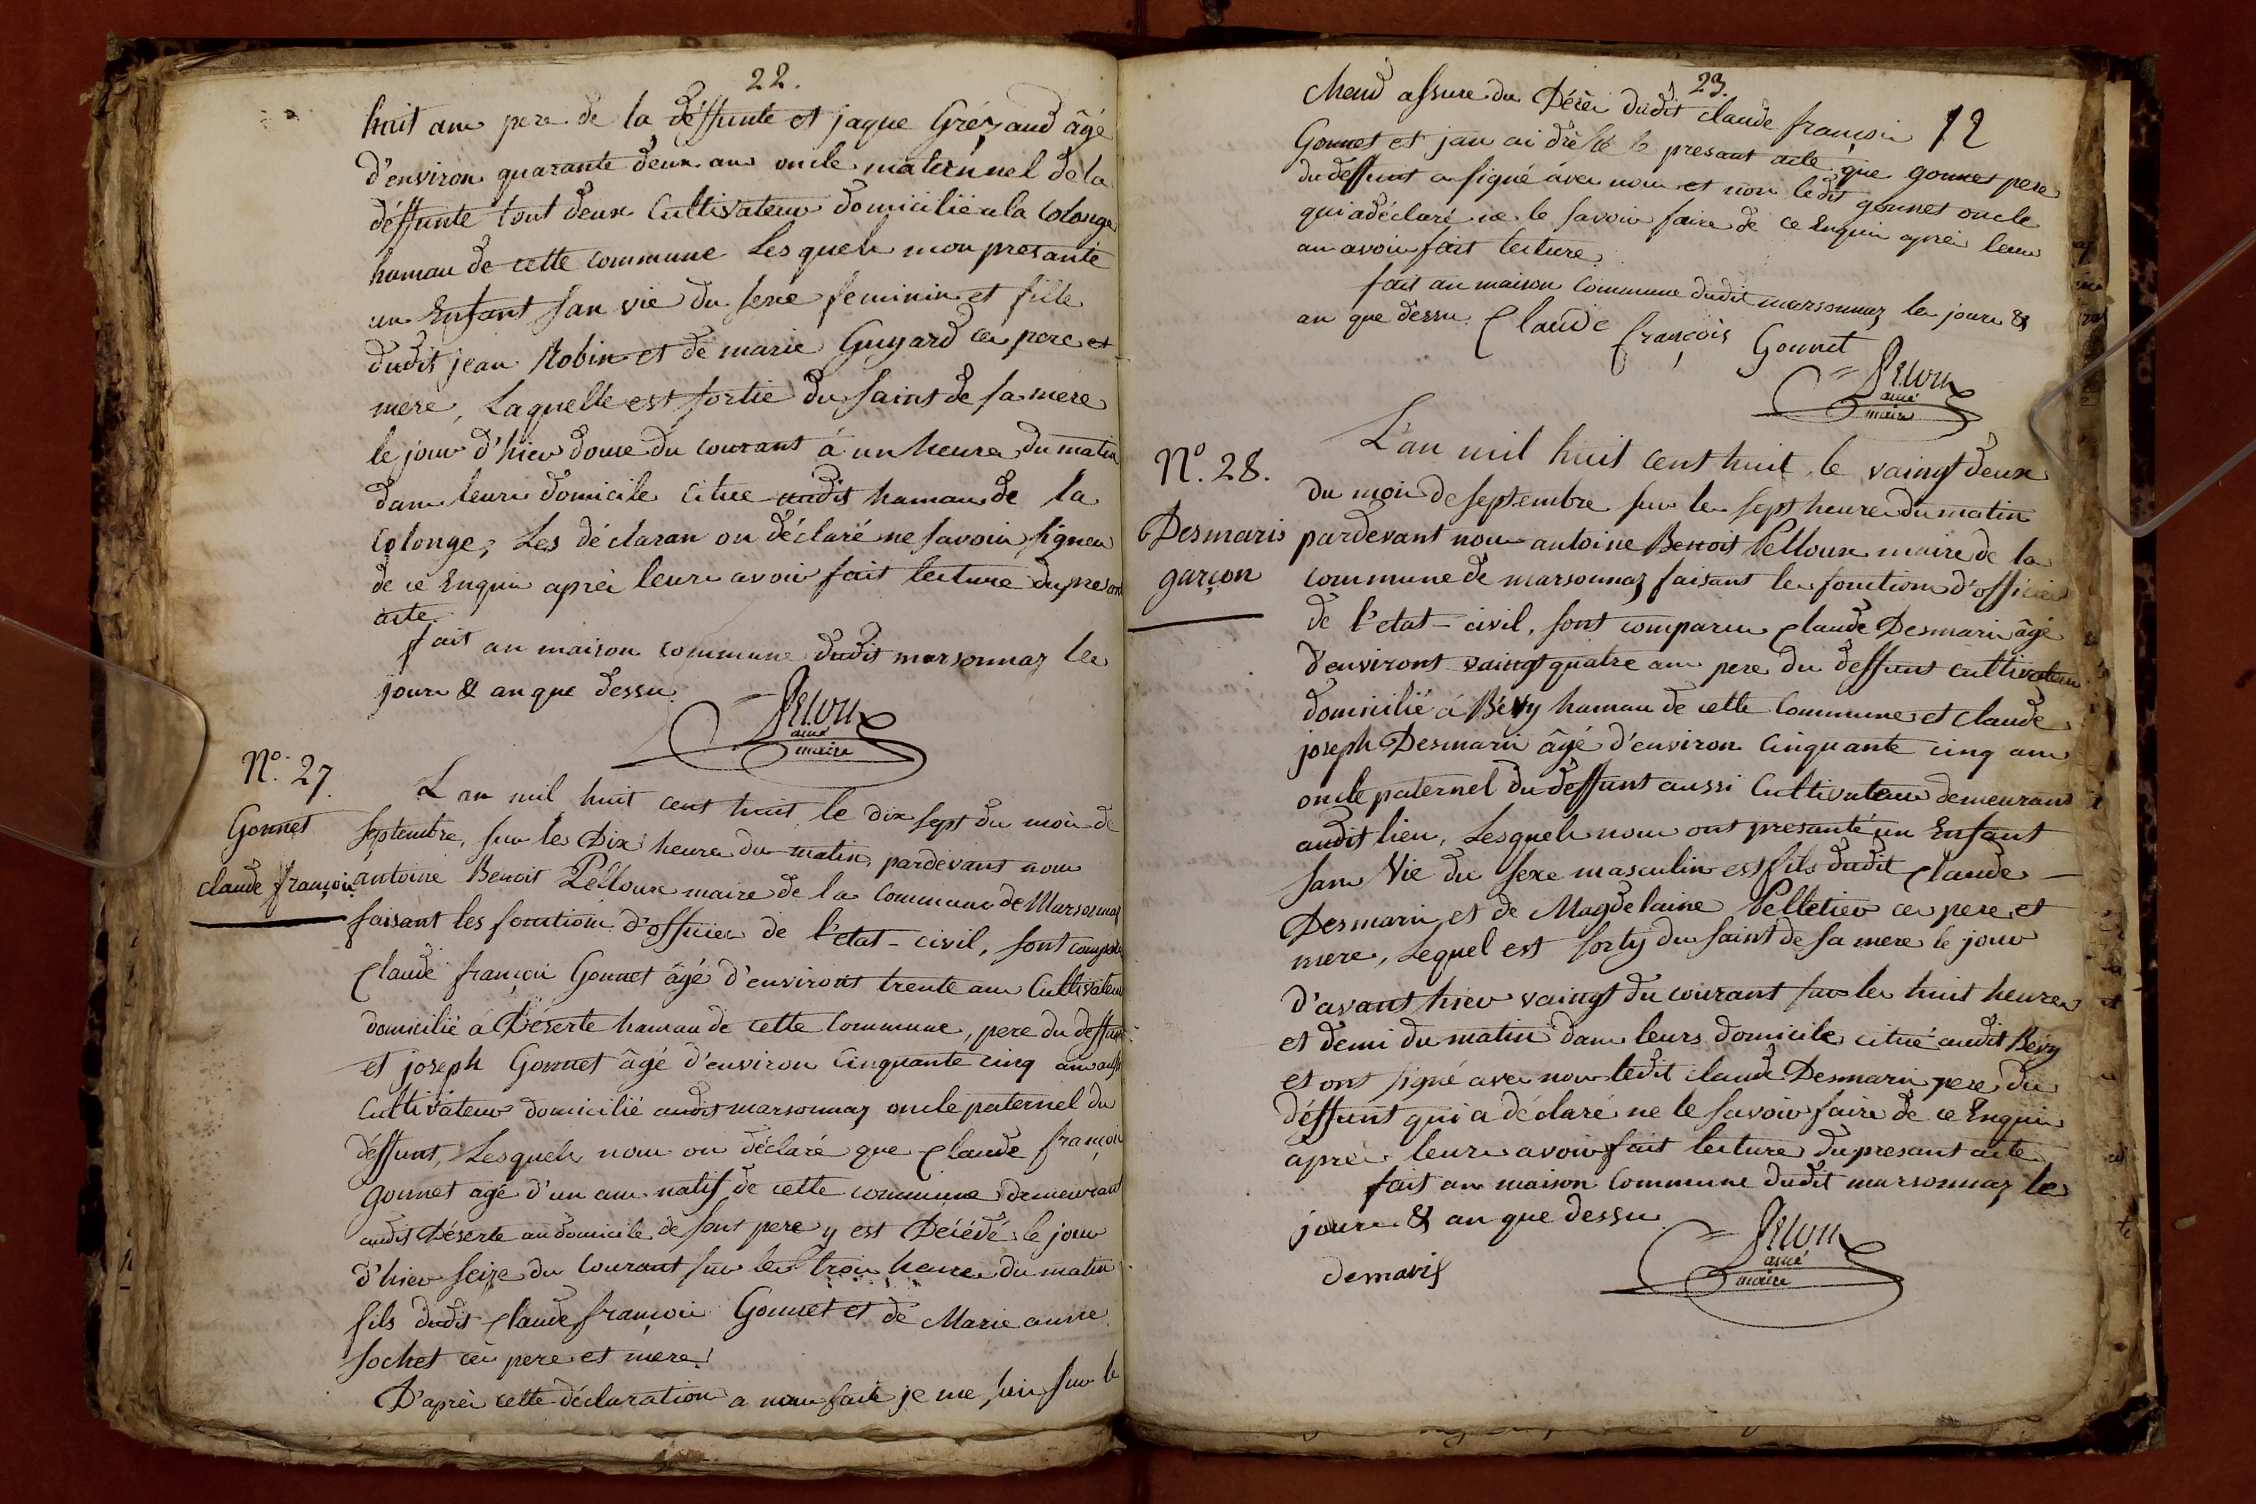 22.
huit ans pere de la déffunte et jaque Grézaud âgé
d'environ quarante deux ans oncle maternnel de la
déffunte tout deux Cultivateur domicilié a la Colonge
hamau de cette commune Lesquels mon presanté
un Enfant san vie du sexe feminin et fille
dudit jean Robin et de marie Guyard ces pere et
mere, Laquelle est sortie du saint de sa mere
le jour d'hier douse du courant á un heures du matin
dans leurs domicile citue audit hamau de la
Colonge, Les déclaran on déclaré ne savoir signer
de ce Enquis aprés leurs avoir fait lecture du presant
acte.
fait an maison commune dudit marsonnaz les
jours & an que dessu
Pelloux
ainé
maire
N.º 27.
Gonnet
claude françois
L'an mil huit cent huit le dix sept du mois de
septembre, sur les Dix heures du matin, pardevant nous
antoine Benoit Pelloux maire de la commune de Marsonnaz
faisant les fonctions d'officier de l'etat-civil, sont comparus
Claude françois Gonnet âgé d'environt trente ans Cultivateur
domicilié á Déserte hamau de cette commune, pere du deffunt
et joseph Gonnet âgé d'environ Cinquante cinq ans aussi
Cultivateur domicilié audit marsonnaz oncle paternel du
déffunt, Lesquels nous on déclaré que Claude françois
Gonnet agé d'un ans natif de cette commune demeurant
audit Déserte au domicile de sont pere y est Décédé le jour
d'hier seize du courant sur les trois heures du matin
fils dudit Claude françois Gonnet et de Marie anne
sochet ces pere et mere.
D'aprés cette déclaration a nous faite je me suis sur le
23.
12
Chand assure du Décès dudit claude françois
Gonnet et jan ai drèssé le presant acte que gonnet pere
du deffunt a signé avec nous et non ledit gonnet oncle
qui a déclaré ne le savoir faire de ce Enquis aprés leurs
an avoir fait lecture.
fait an maison commune dudit marsonnaz les jours &
an que dessu. Claude françois Gonnet
Pelloux
ainé
maire
N.º 28.
Desmaris
garçon
L'an mil huit cent huit, le vaingt deux
du mois de septembre sur les sept heures du matin
pardevant nous antoine Benoit Pelloux maire de la
commune de marsonnaz faisant les fonctions d'officier
de l'etat-civil, sont comparus Claude Desmaris âgé
d'environt vaingt quatre ans pere du deffunt cultivateur
domicilié á Bévy hamau de cette commune et Claude
joseph Desmaris âgé d'environ Cinquante cinq ans
oncle paternel du deffunt aussi Cultivateur demeurant
audit lieu, Lesquels nous ont presanté un Enfant
sans Vie du sexe masculin est fils dudit Claude
Desmaris et de Magdelaine Pelletier ces pere et
mere, Lequel est sorty du saint de sa mere le jour
d'avant hier vaingt du courant sur les huit heures
et demi du matin dans leurs domicile citué audit Bévy
et ont signé avec nous ledit claude Desmaris pere du
déffunt qui a déclaré ne le savoir faire de ce Enquis
aprés leurs avoir fait lecture du presant acte
fait an maison commune dudit marsonnaz les
jours & an que dessu
demaris
Pelloux
ainé
maire